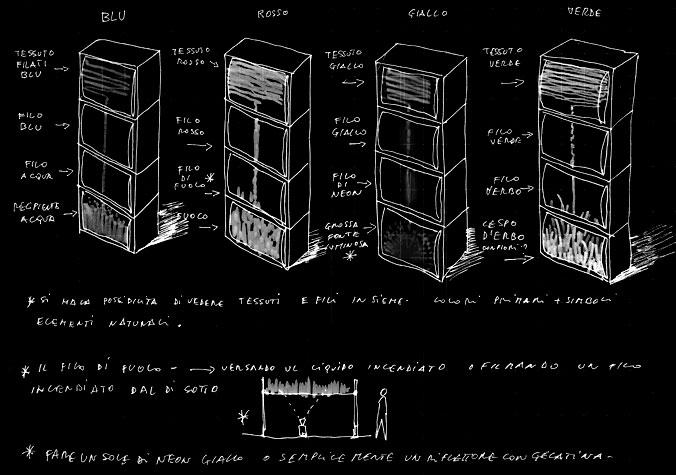 BLU
ROSSO
GIALLO
VERDE
TESSUTO
FILATI
BLU
FILO
BLU
FILO
ACQUA
RECIPIENTE
ACQUA
TESSUTO
ROSSO
FILO
ROSSO
FILO
DI
FUOCO *
FUOCO
TESSUTO
GIALLO
FILO
GIALLO
FILO
DI
NEON
GROSSA
FONTE
LUMINOSA
*
TESSUTO
VERDE
FILO
VERDE
FILO
D'ERBA
CESPO
D'ERBA
CON FIORI ?
* SI HA LA POSSIBILITÀ DI VEDERE TESSUTI E FILI INSIEME - COLORI PRIMARI + SIMBOLI
ELEMENTI NATURALI.
* IL FILO DI FUOCO - → VERSANDO UN LIQUIDO INCENDIATO O FILMANDO UN FILO
INCENDIATO DAL DI SOTTO
*
* FARE UN SOLE DI NEON GIALLO O SEMPLICEMENTE UN RIFLETTORE CON GELATINA -